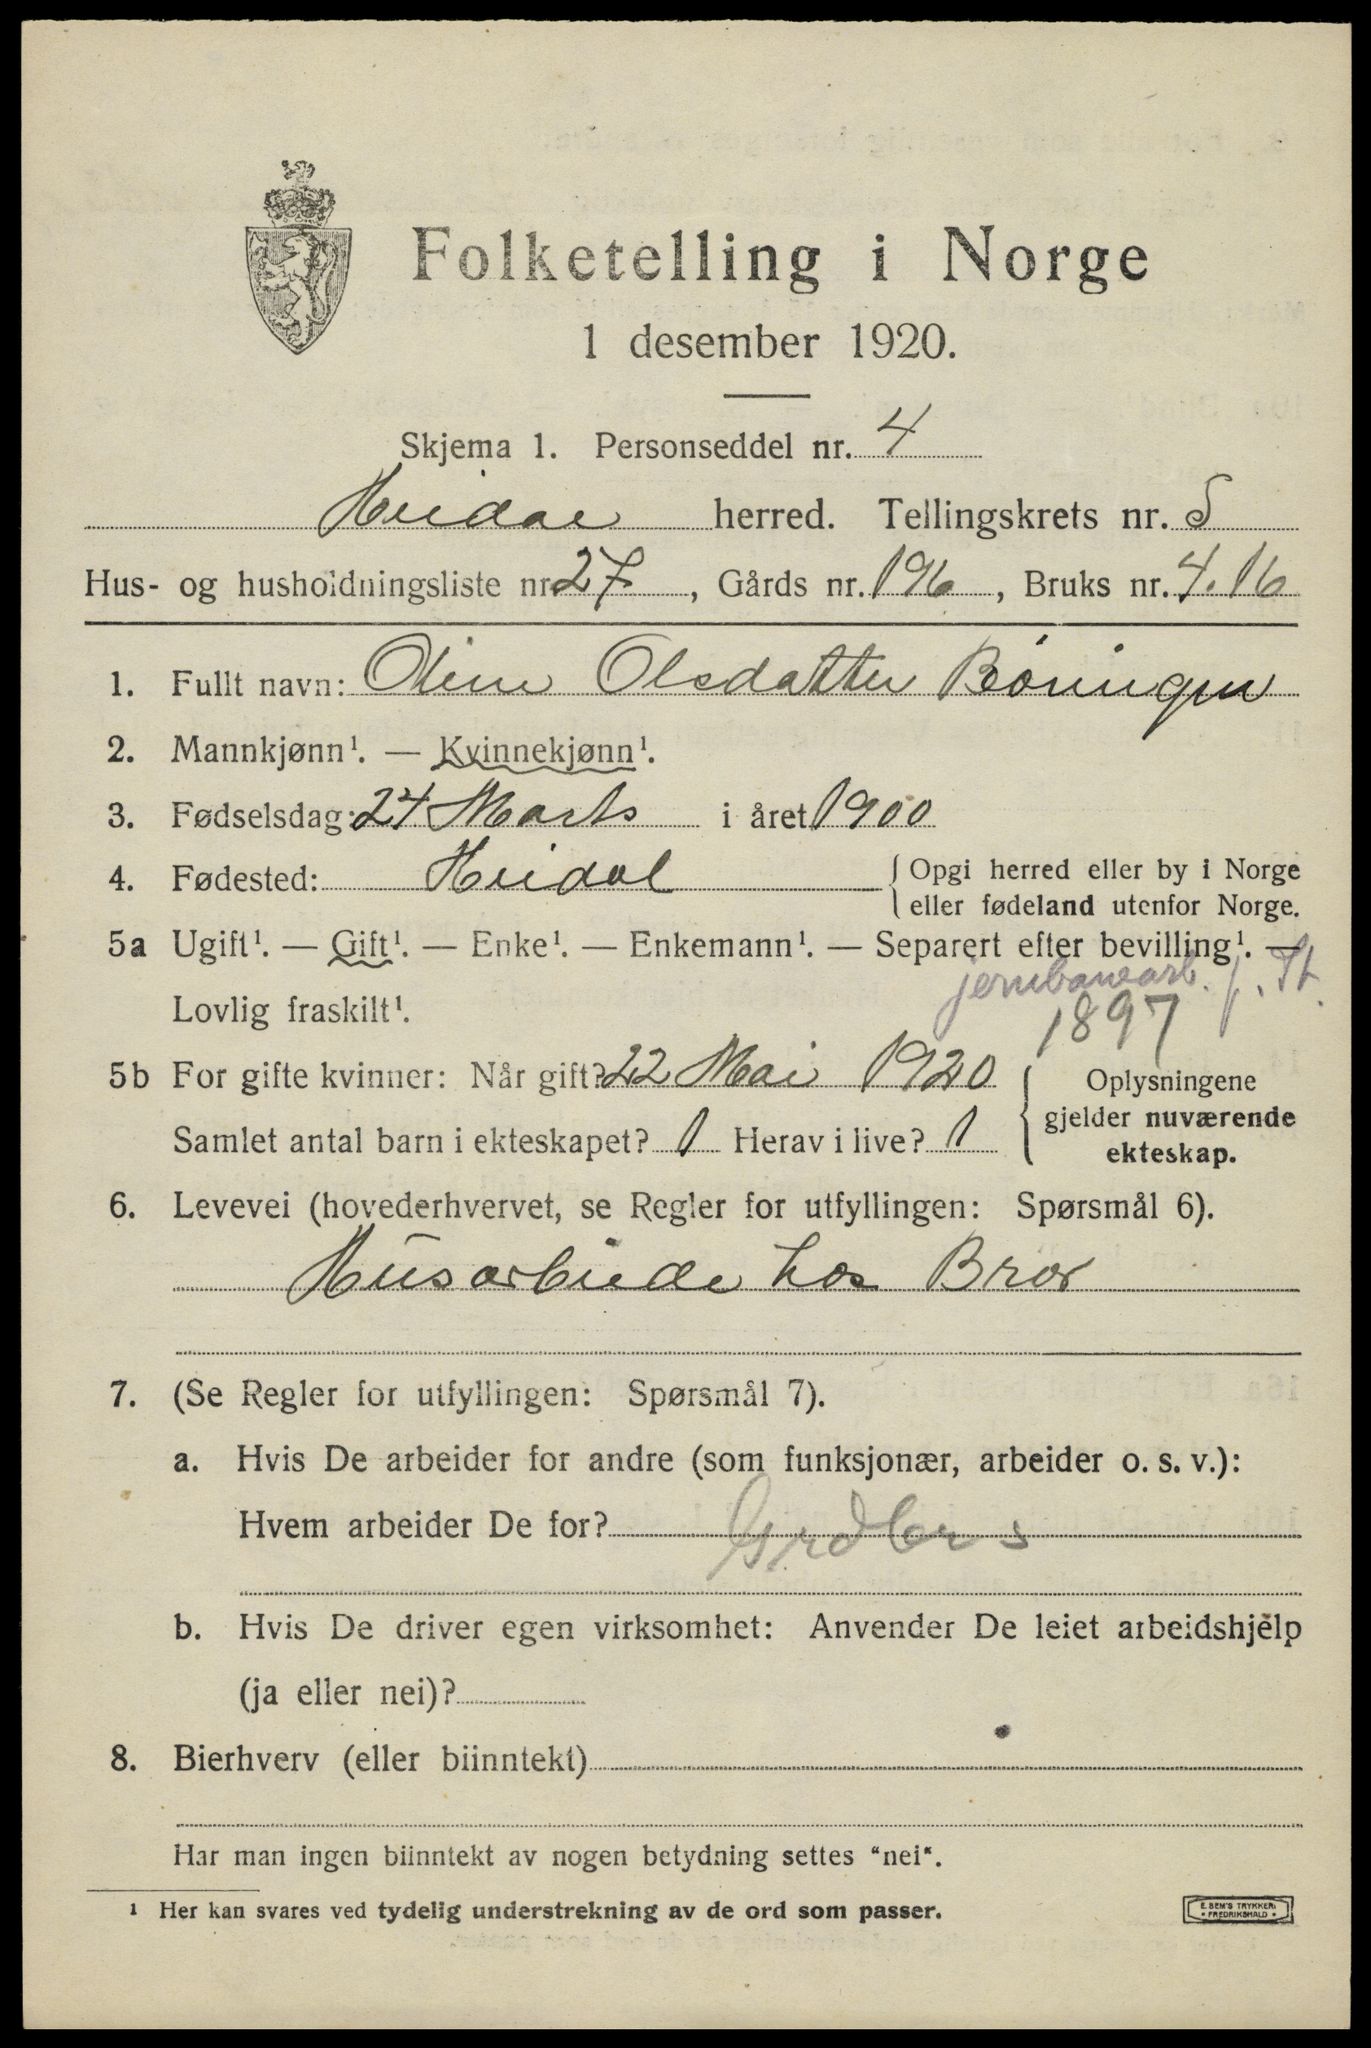 Folketelling i Norge
1 desember 1920.
Skjema 1. Personseddel nr. 4
Heidal herred. Tellingskrets nr. 5
Hus- og husholdningsliste nr. 27, Gårds nr. 196, Bruks nr. 4.16
1. Fullt navn: Oline Olsdatter Bøningen
2. Mannkjønn¹. — Kvinnekjønn¹.
3. Fødselsdag: 24 Marts i året 1900
4. Fødested: Heidal { Opgi herred eller by i Norge
eller fødeland utenfor Norge.
5a Ugift¹. — Gift¹. — Enke¹. — Enkemann¹. — Separert efter bevilling¹. —
jernbanearb. f. St.
Lovlig fraskilt¹. 1897
5b For gifte kvinner: Når gift? 22 Mai 1920 { Oplysningene
gjelder nuværende
Samlet antal barn i ekteskapet? 1 Herav i live? 1
ekteskap.
6. Levevei (hovederhvervet, se Regler for utfyllingen: Spørsmål 6).
Husarbeide hos Bror
7. (Se Regler for utfyllingen: Spørsmål 7).
a. Hvis De arbeider for andre (som funksjonær, arbeider o. s. v.):
Hvem arbeider De for? Grdbr s
b. Hvis De driver egen virksomhet: Anvender De leiet arbeidshjelp
(ja eller nei)?
8. Bierhverv (eller biinntekt)
Har man ingen biinntekt av nogen betydning settes "nei".
¹ Her kan svares ved tydelig understrekning av de ord som passer.
E. SEM'S TRYKKERI
* FREDRIKSHALD *